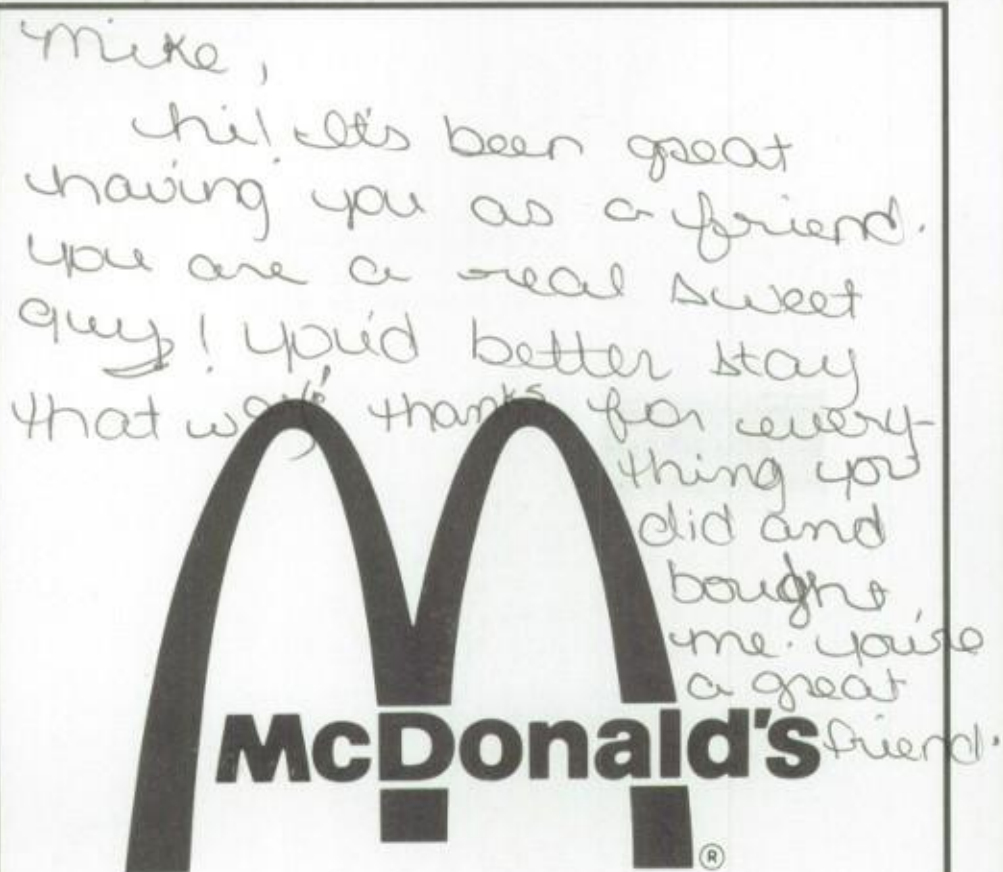 Mike,
hi! It's been great
having you as a friend.
you are a real sweet
guy! you'd better stay
that way! thanks for every-
thing you
did and
bought
me. you're
a great
friend.
McDonald's
®